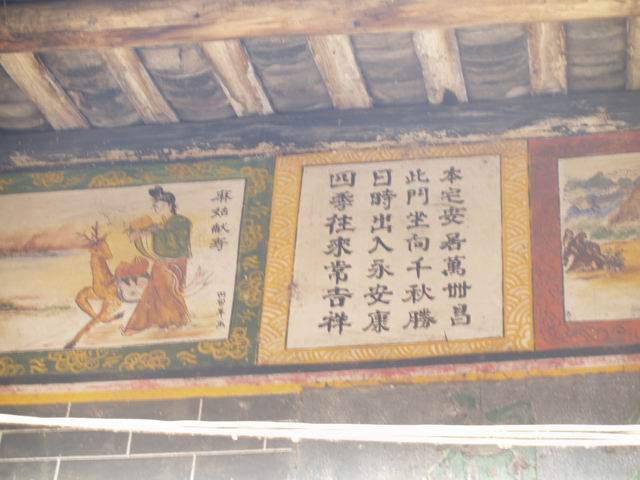 本宅安居萬卌昌
此門坐向千秋勝
日時出入永安康
四季往來常吉祥
麻姑献寿